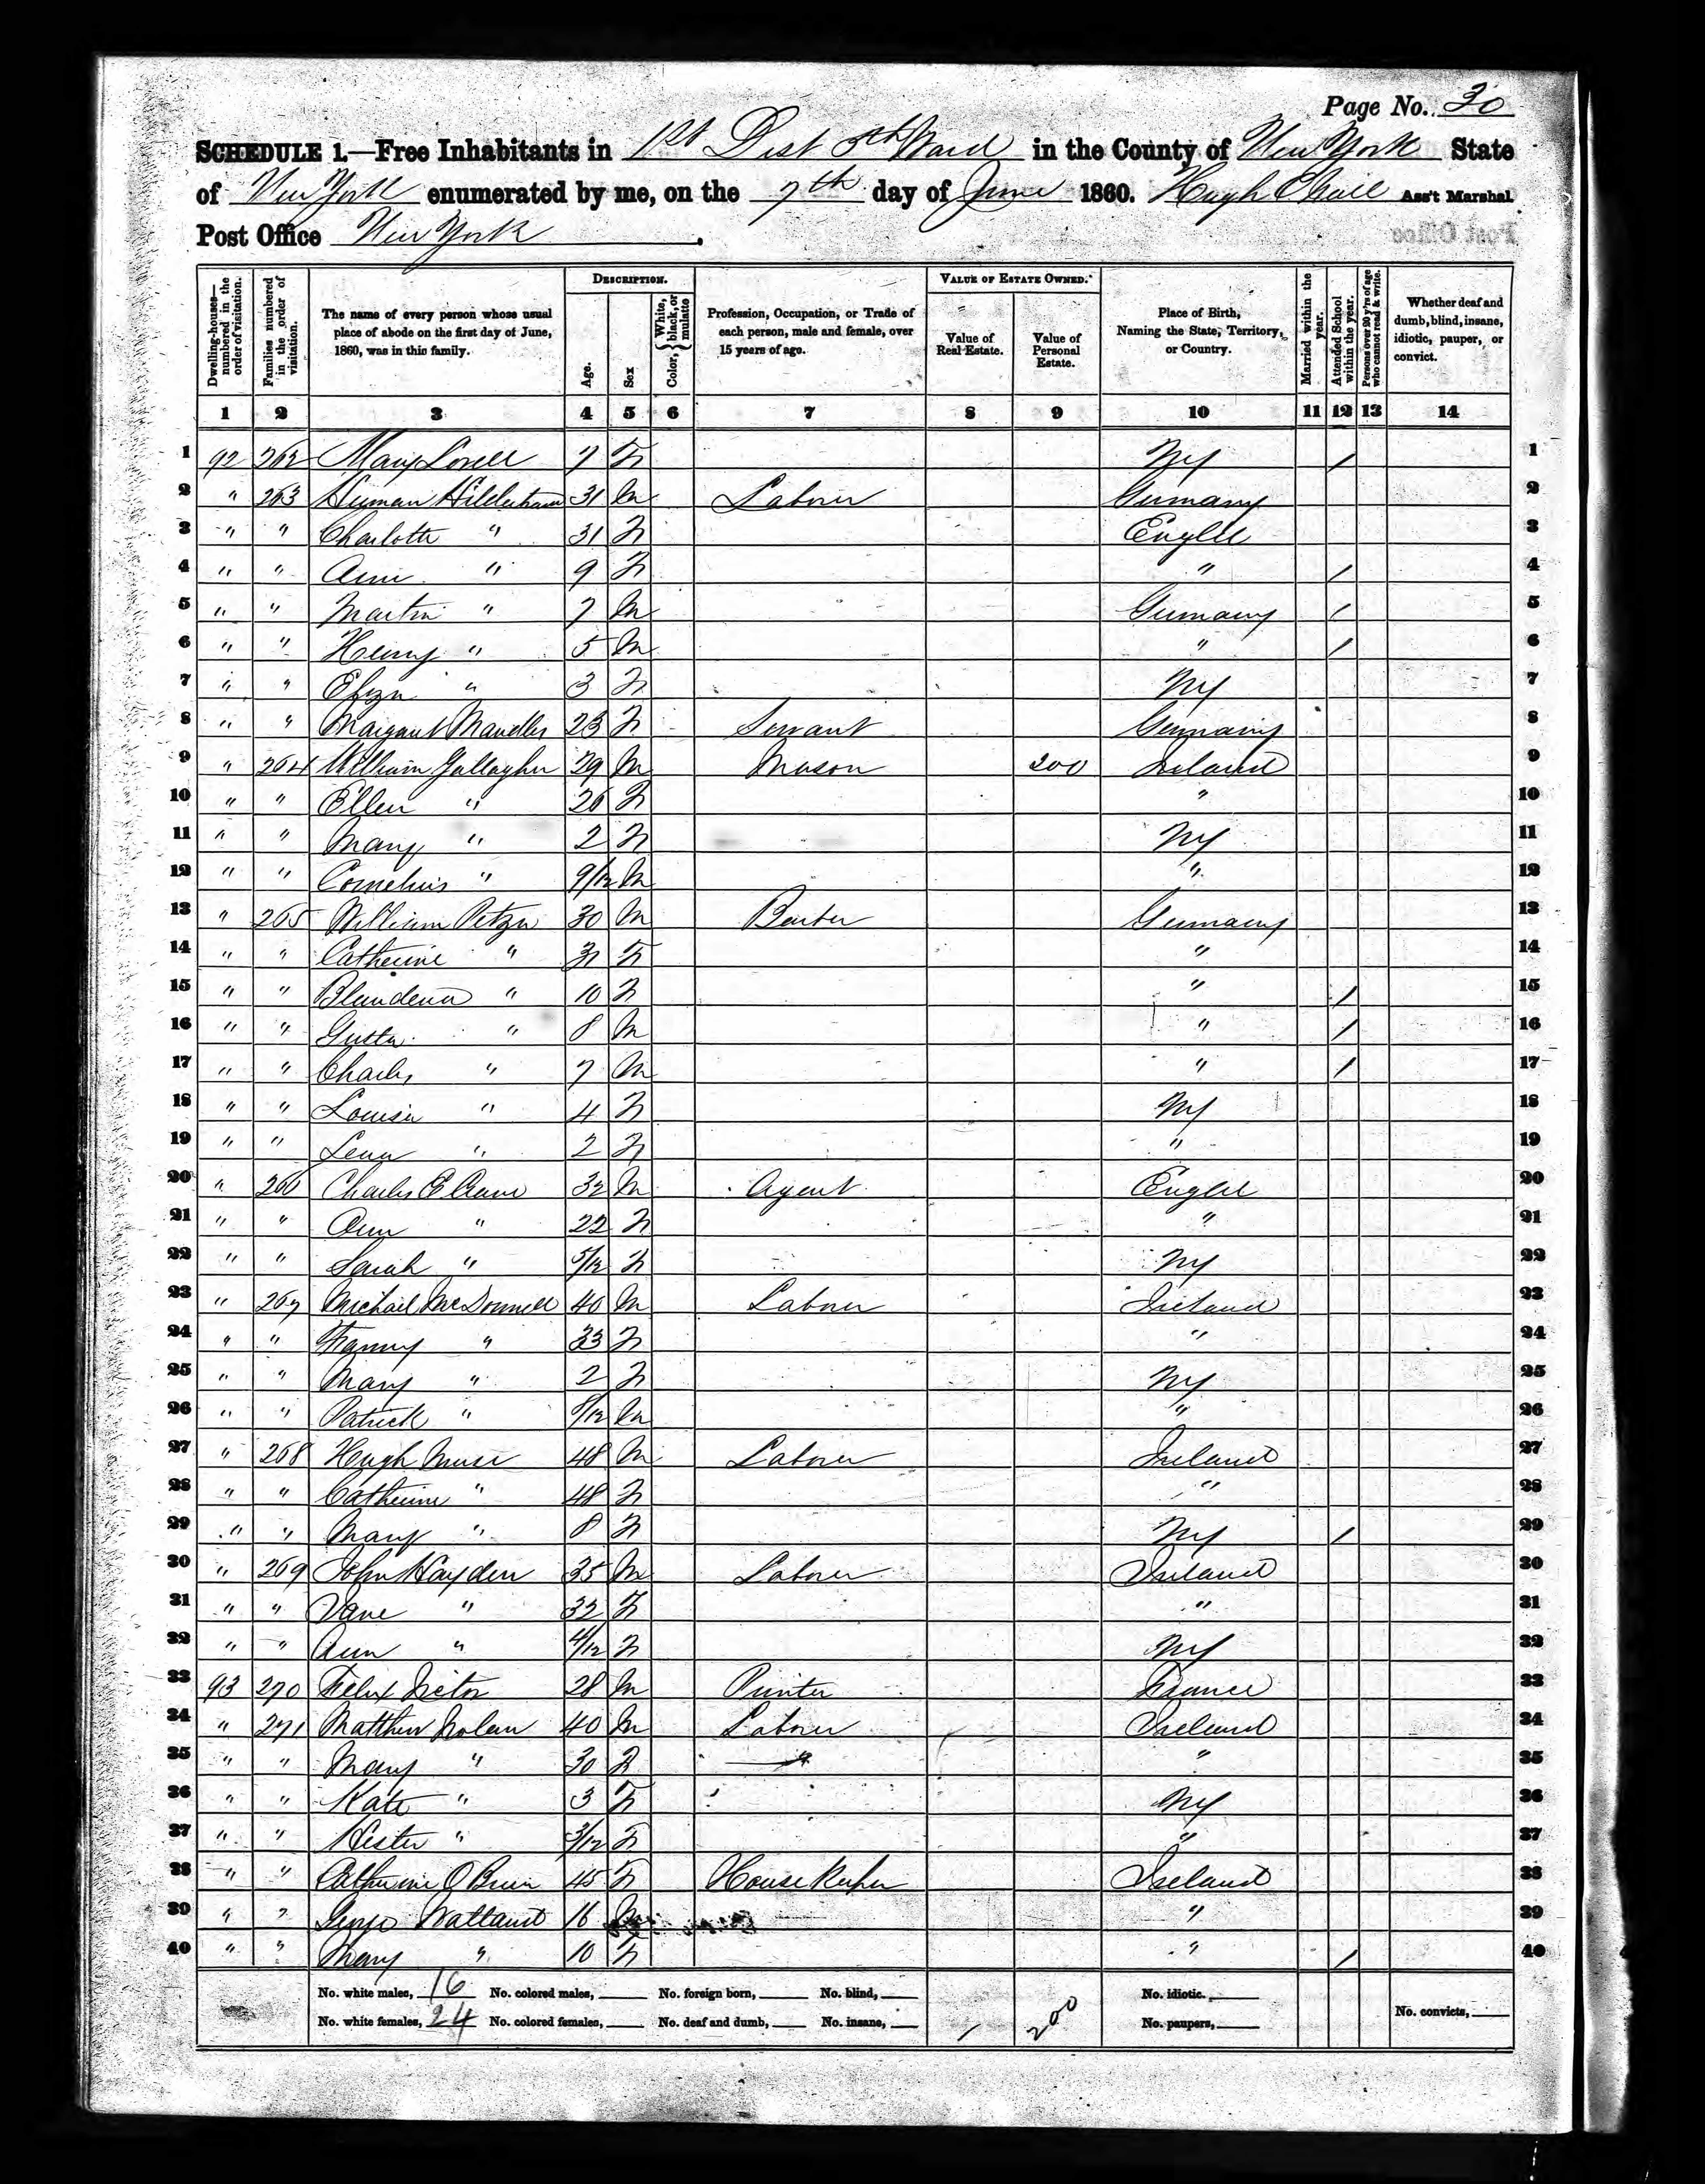 Page No. 30
SCHEDULE 1.—Free Inhabitants in 1st Dist 5th Ward in the County of New York State
of New York enumerated by me, on the 7th day of June 1860. Hugh Ass't Marshal
Post Office New York.
Dwelling-houses— numbered in the order of visitation.
Families numbered in the order of visitation.
The name of every person whose usual place of abode on the first day of June, 1860, was in this family.
DESCRIPTION.
Age.
Sex
Color, {White, black, or mulatto
Profession, Occupation, or Trade of each person, male and female, over 15 years of age.
VALUE OF ESTATE OWNED.
Value of Real Estate.
Value of Personal Estate.
Place of Birth, Naming the State, Territory, or Country.
Married within the year.
Attended School within the year.
Persons over 20 y'rs of age who cannot read & write.
Whether deaf and dumb, blind, insane, idiotic, pauper, or convict.
1 2 3 4 5 6 7 8 9 10 11 12 13 14
1 92 262 Mary 7 F NY / 1
2 " 263 31 M Laborer Germany 2
3 " " Charlotte " 31 F Engld 3
4 " " Ann " 9 F " / 4
5 " " Martin " 7 M Germany / 5
6 " " Henry " 5 M " / 6
7 " " Eliza " 3 F NY 7
8 " " Margaret 23 F Servant Germany 8
9 " 264 William Gallagher 29 M Mason 200 Ireland 9
10 " " Ellen " 26 F " 10
11 " " Mary " 2 F NY 11
12 " " Cornelius " 9/12 M " 12
13 " 265 William 30 M Barber Germany 13
14 " " Catherine " 31 F " 14
15 " " " 10 F " / 15
16 " " " 8 M " / 16
17 " " Charles " 7 M " / 17
18 " " Louisa " 4 F NY 18
19 " " Lena " 2 F " 19
20 " 266 Charles E 32 M Agent Engld 20
21 " " Ann " 22 F " 21
22 " " Sarah " 5/12 F NY 22
23 " 267 Michael McDonnell 40 M Laborer Ireland 23
24 " " Fanny " 33 F " 24
25 " " Mary " 2 F NY 25
26 " " Patrick " 8/12 M " 26
27 " 268 Hugh 48 M Laborer Ireland 27
28 " " Catherine " 48 F " 28
29 " " Mary " 8 F NY / 29
30 " 269 John Hayden 35 M Laborer Ireland 30
31 " " Jane " 32 F " 31
32 " " Ann " 4/12 F NY 32
33 93 270 Felix Victor 28 M Printer France 33
34 " 271 Matthew Nolan 40 M Laborer Ireland 34
35 " " Mary " 30 F " 35
36 " " Kate " 3 F NY 36
37 " " Hester " 3/12 F " 37
38 " " Catherine O Brien 45 F House Keeper Ireland 38
39 " " 16 M " 39
40 " " Mary " 10 F " / 40
No. white males, 16 No. colored males, No. foreign born, No. blind, No. idiotic.
No. white females, 24 No. colored females, No. deaf and dumb, No. insane, 200 No. paupers, No. convicts,